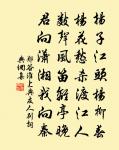 揚子江頭楊柳春
楊花愁殺渡江人
數聲風笛離亭晚
君向瀟湘我向秦
鄭谷淮上與友人別詞
典網集